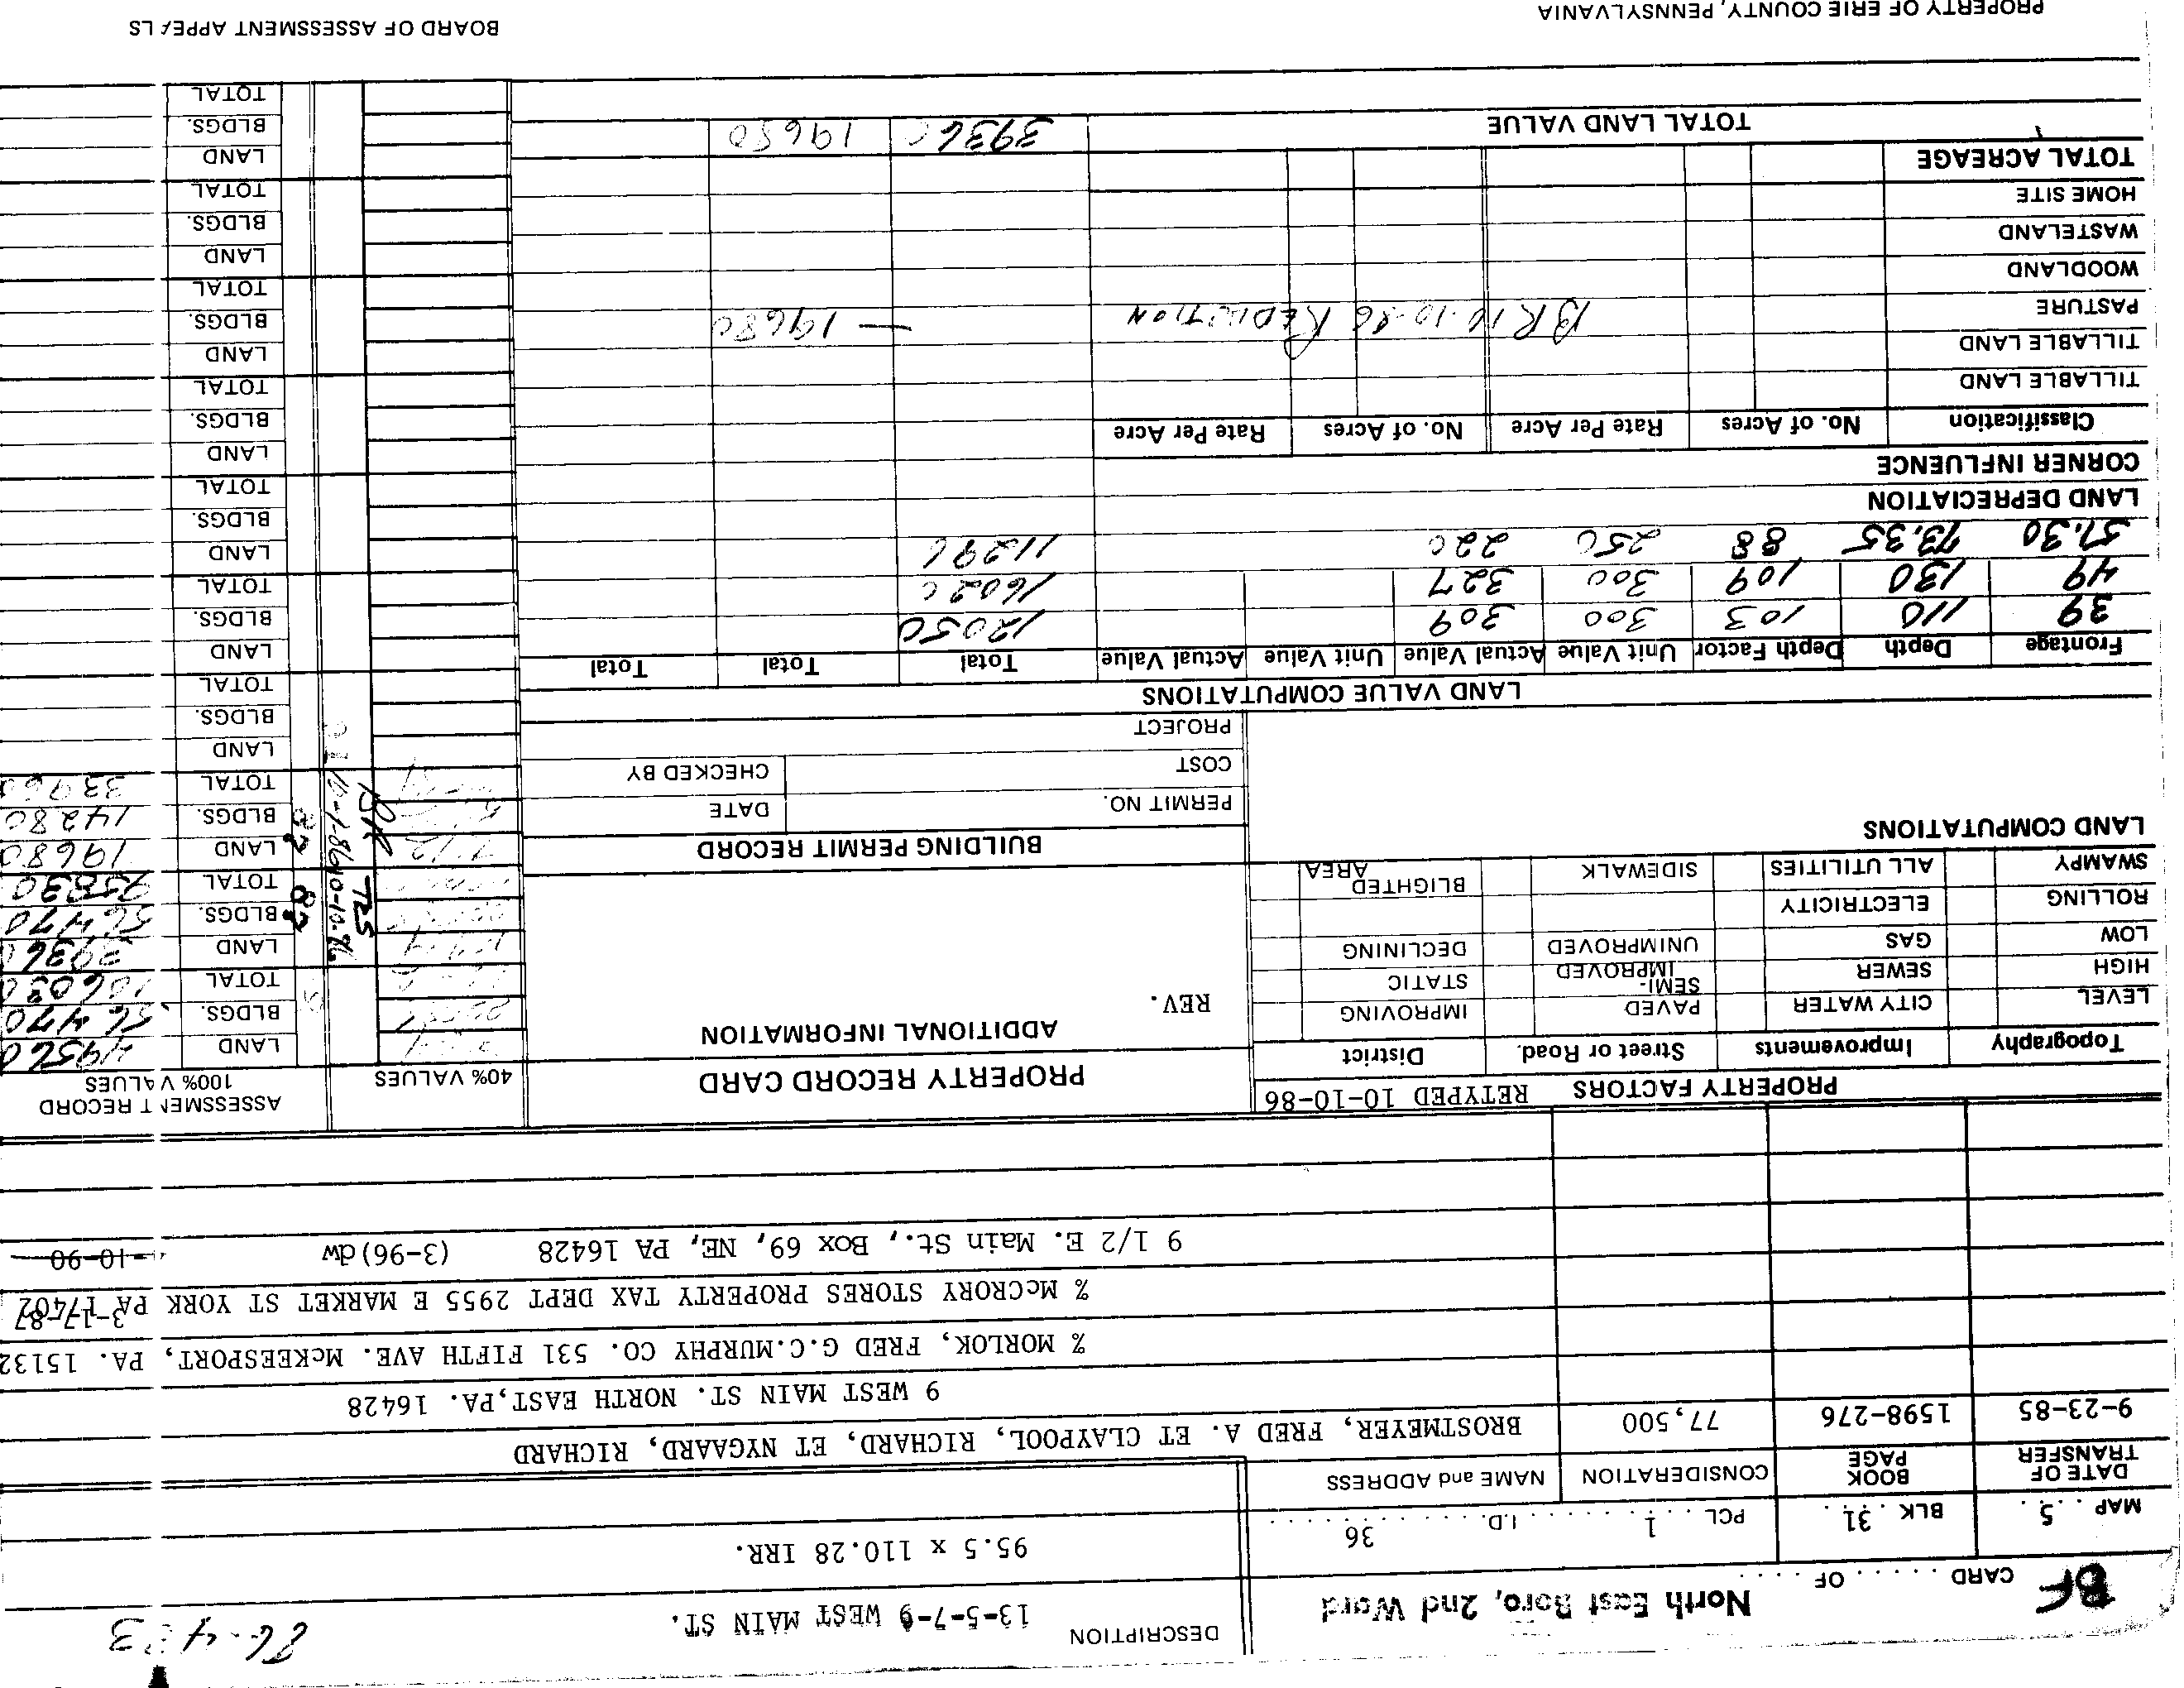 86-4
BF CARD . . . . . OF . . . . .
North East Boro, 2nd Ward
DESCRIPTION
13-5-7-9 WEST MAIN ST.
95.5 x 110.28 IRR.
MAP . . 5 . BLK . 31 . . PCL . . . 1 . . . . . . I.D. . . . 36 . . . . .
DATE OF TRANSFER BOOK PAGE CONSIDERATION NAME and ADDRESS
9-23-85 1598-276 77,500 BROSTMEYER, FRED A. ET CLAYPOOL, RICHARD, ET NYGAARD, RICHARD
9 WEST MAIN ST. NORTH EAST,PA. 16428
% MORLOK, FRED G.C.MURPHY CO. 531 FIFTH AVE. McKEESPORT, PA. 15132
% McCRORY STORES PROPERTY TAX DEPT 2955 E MARKET ST YORK PA 17402 3-17-87
9 1/2 E. Main St., Box 69, NE, PA 16428 (3-96)dw -10-90
PROPERTY FACTORS RETYPED 10-10-86
Topography Improvements Street or Road. District
LEVEL CITY WATER PAVED IMPROVING
HIGH SEWER SEMI-IMPROVED STATIC
LOW GAS UNIMPROVED DECLINING
ROLLING ELECTRICITY
SWAMPY ALL UTILITIES SIDEWALK BLIGHTED AREA
LAND COMPUTATIONS
PROPERTY RECORD CARD
ADDITIONAL INFORMATION
REV.
BUILDING PERMIT RECORD
PERMIT NO. DATE
COST CHECKED BY
PROJECT
40% VALUES
ASSESSMENT RECORD
100% VALUES
LAND 49560
BLDGS. 56470
TOTAL 106030
87 TRS 10-10-86
LAND 39360
BLDGS. 56470
TOTAL 95830
87 BR 10-1-86
LAND 19680
BLDGS. 14280
TOTAL 33960
LAND
BLDGS.
TOTAL
LAND
BLDGS.
TOTAL
LAND
BLDGS.
TOTAL
LAND
BLDGS.
TOTAL
LAND
BLDGS.
TOTAL
LAND
BLDGS.
TOTAL
LAND
BLDGS.
TOTAL
LAND VALUE COMPUTATIONS
Frontage Depth Depth Factor Unit Value Actual Value Unit Value Actual Value Total Total Total
39 110 103 300 309 12050
49 130 109 300 327 16020
51.30 73.35 88 250 220 11290
LAND DEPRECIATION
CORNER INFLUENCE
Classification No. of Acres Rate Per Acre No. of Acres Rate Per Acre
TILLABLE LAND
TILLABLE LAND
PASTURE BR 10-10-86 REDUCTION — 19680
WOODLAND
WASTELAND
HOME SITE
TOTAL ACREAGE
TOTAL LAND VALUE 39360 19680
PROPERTY OF ERIE COUNTY, PENNSYLVANIA
BOARD OF ASSESSMENT APPEALS